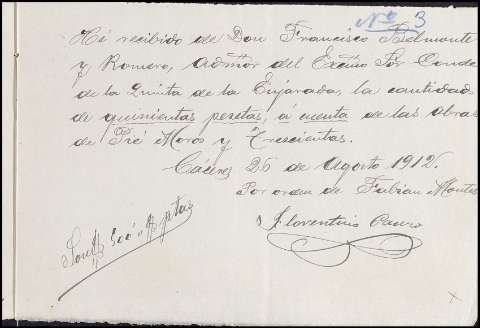 Nº 3
Hé recibido de Don Francisco Belmonte
y Romero, Admor del Excmo Sor Conde
de la Quinta de la Enjarada, la cantidad
de quinientas pesetas, á cuenta de las obras
de Pié Moros y Trescientas.
Cáceres 26 de Agosto 1912.
Por orden de Fabian Montes
Florentino
Son 500 ptas